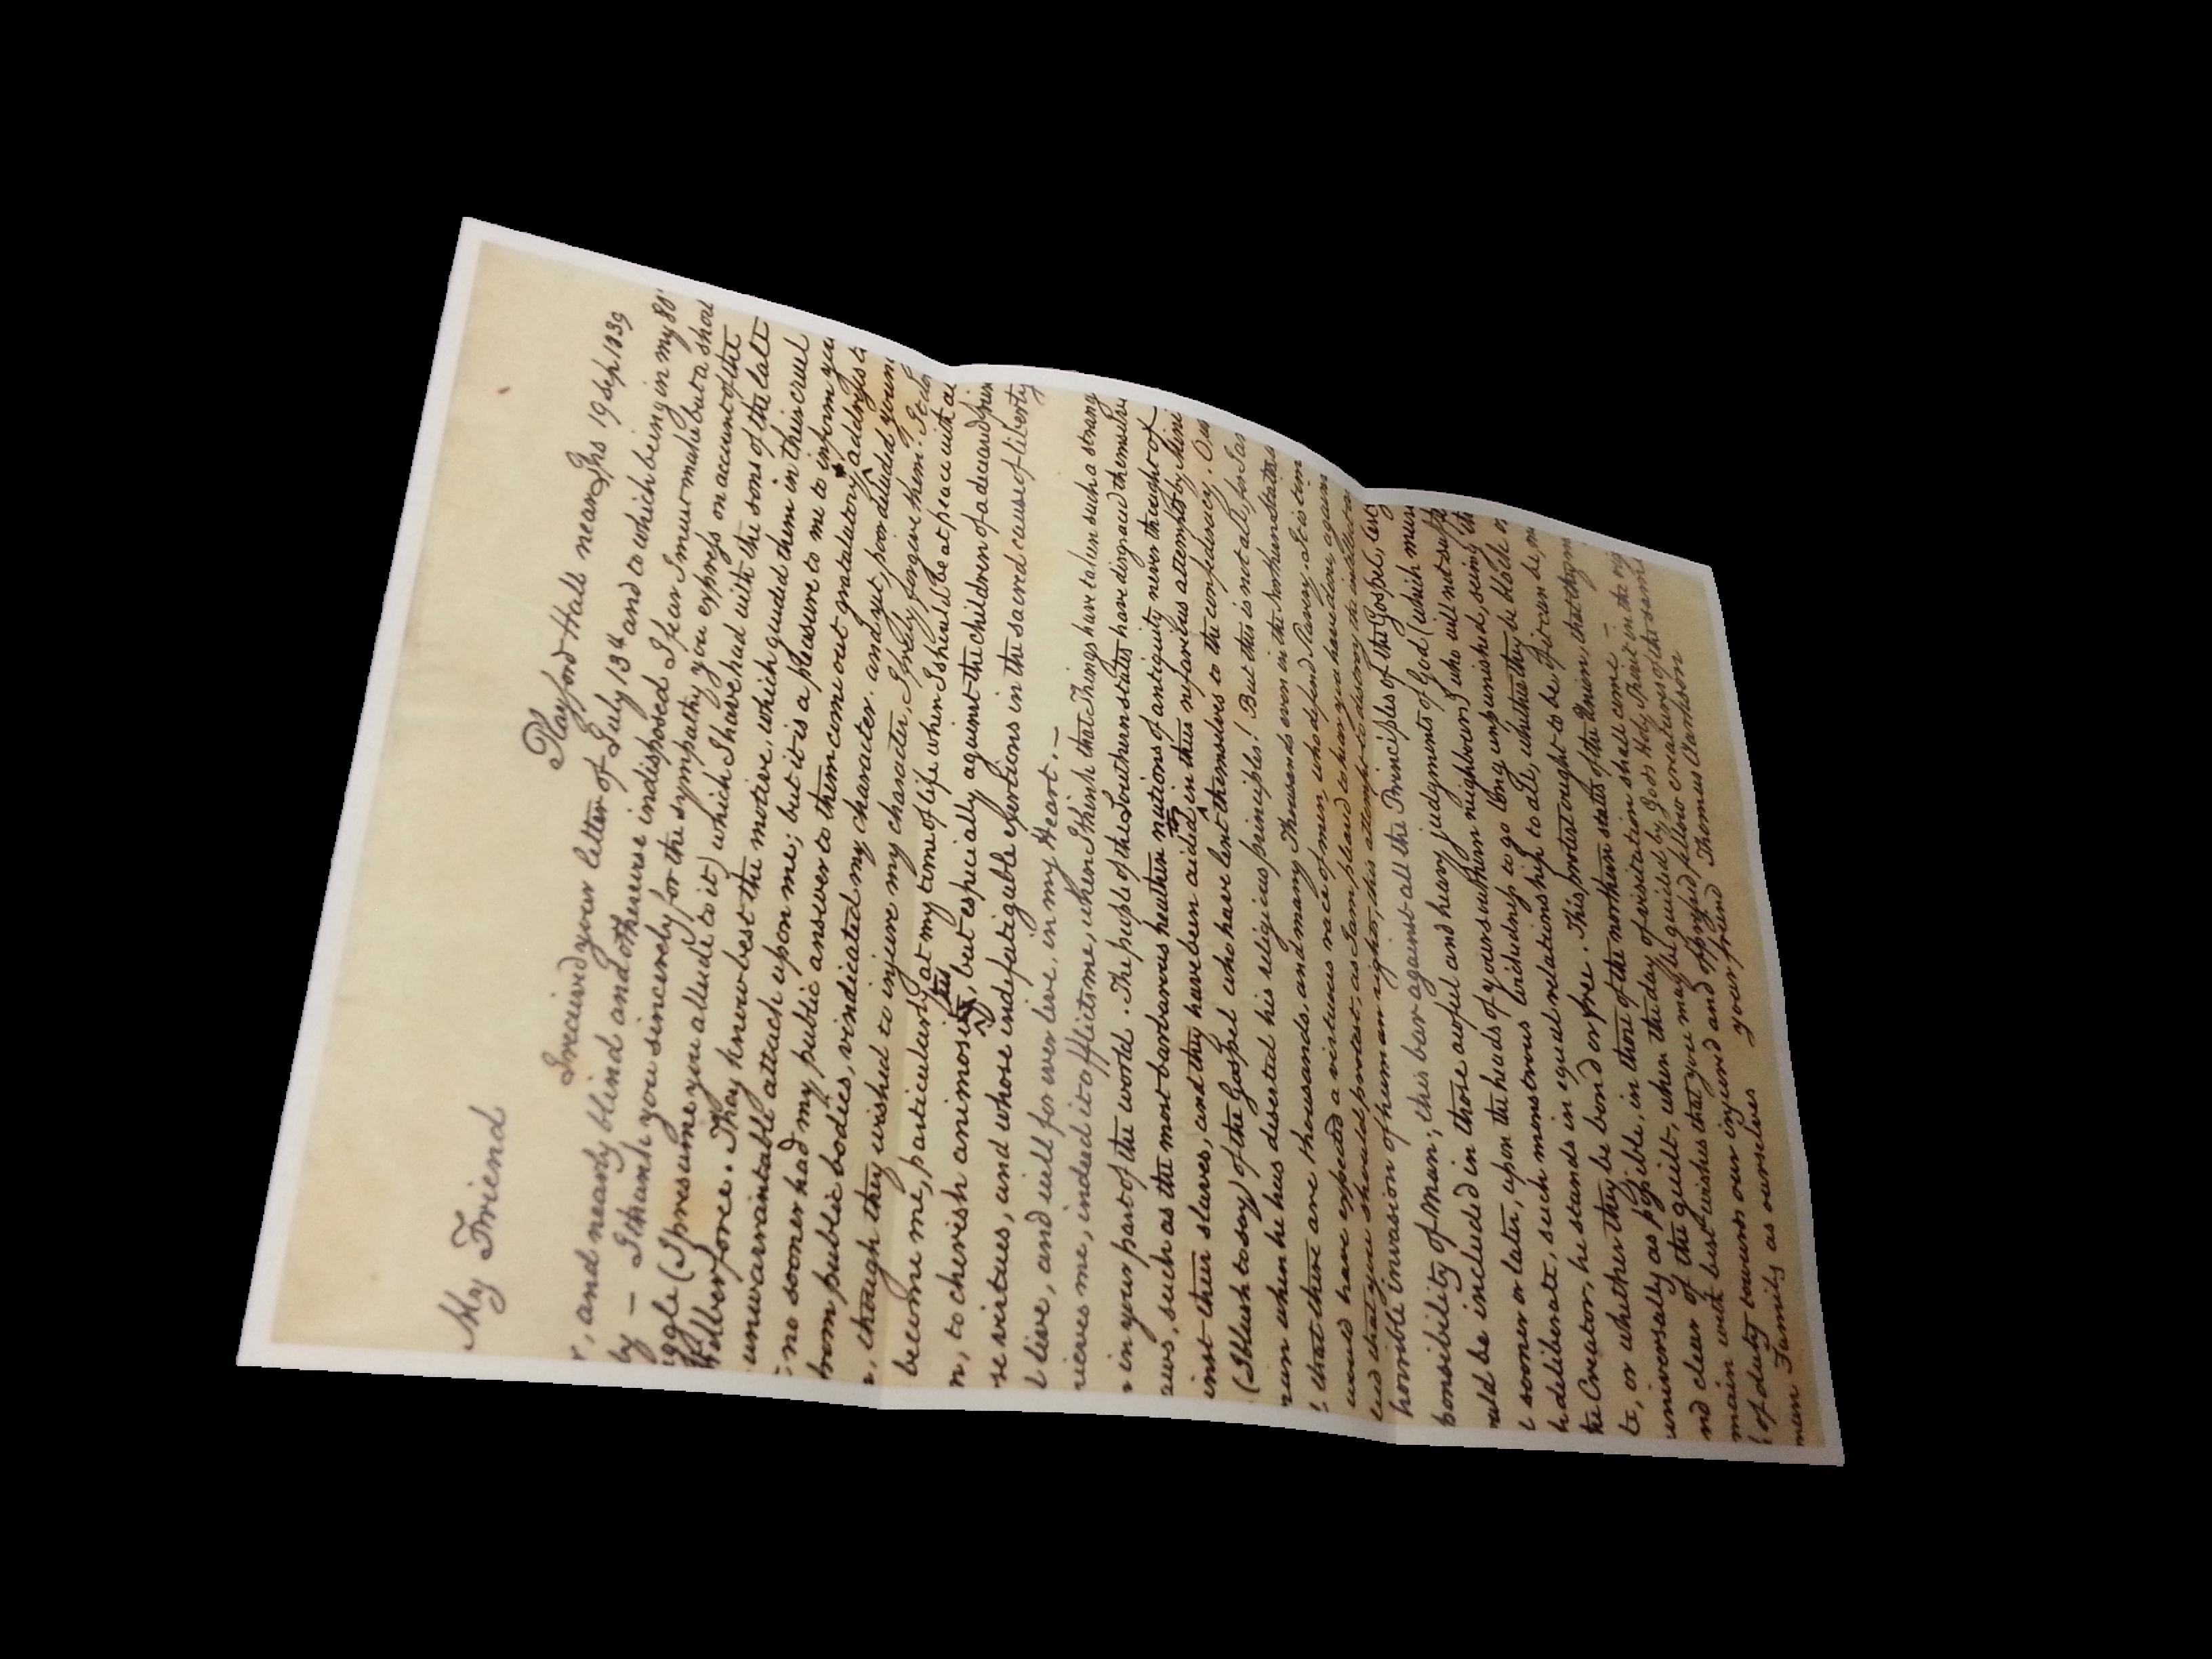 Playford Hall near Ips 19 Sep 1839
My Friend
I received your letter of July 13th and to which being in my 80
r, and nearly blind and otherwise indisposed I fear I must make but a shor
ly — I thank you sincerely for the sympathy you express on account of the
ggle (I presume you allude to it) which I have had with the sons of the late
Wilberforce. They know best the motive, which guided them in their cruel
unwarrantable attack upon me; but it is a pleasure to me to inform you
no sooner had my public answer to them come out gratulatory addresses t
from public bodies, vindicated my character. and yet, poor deluded youn
, though they wished to injure my character, I freely forgive them. It do
become me, particularly at my time of life when I should be at peace with al
n, to cherish animosities, but especially against the children of a deceased frien
se virtues, and whose indefatigable exertions in the sacred cause of liberty
l live, and will for ever live, in my Heart. —
rieves me, indeed it afflicts me, when I think that Things have taken such a strang
in your part of the world. The people of the Southern states have disgraced themselve
aws, such as the most barbarous heathen nations of antiquity never thought of
inst their slaves, and they have been aided in their nefarious attempts by Mini
(I blush to say) of the Gospel who have lent themselves to the confederacy. Ou
run when he has deserted his religious principles! But this is not all, for I as
! that there are thousands, and many Thousands even in the Northern states
would have expected a virtuous race of men, who defend slavery. It is tim
led that you should protest, as I am pleased to hear you have done, agains
horrible invasion of human rights, this attempt to destroy the intellect a
ponsibility of Man; this bar against all the Principles of the Gospel, les
uld be included in those awful and heavy judgments of God (which mus
l sooner or later, upon the heads of your southern neighbours) who will not suffe
h deliberate, such monstrous wickedness to go long unpunished, seeing th
the Creator, he stands in equal relationship to all, whether they be black or
te, or whether they be bond or free. This protest ought to be, if it can be, m
universally as possible, in those of the northern states of the Union, that they m
nd clear of the guilt, when the day of visitation shall come —
main with best wishes that you may be guided by God's Holy Spirit in the rig
of duty towards our injured and oppressed fellow creatures of the same
man Family as ourselves your friend Thomas Clarkson